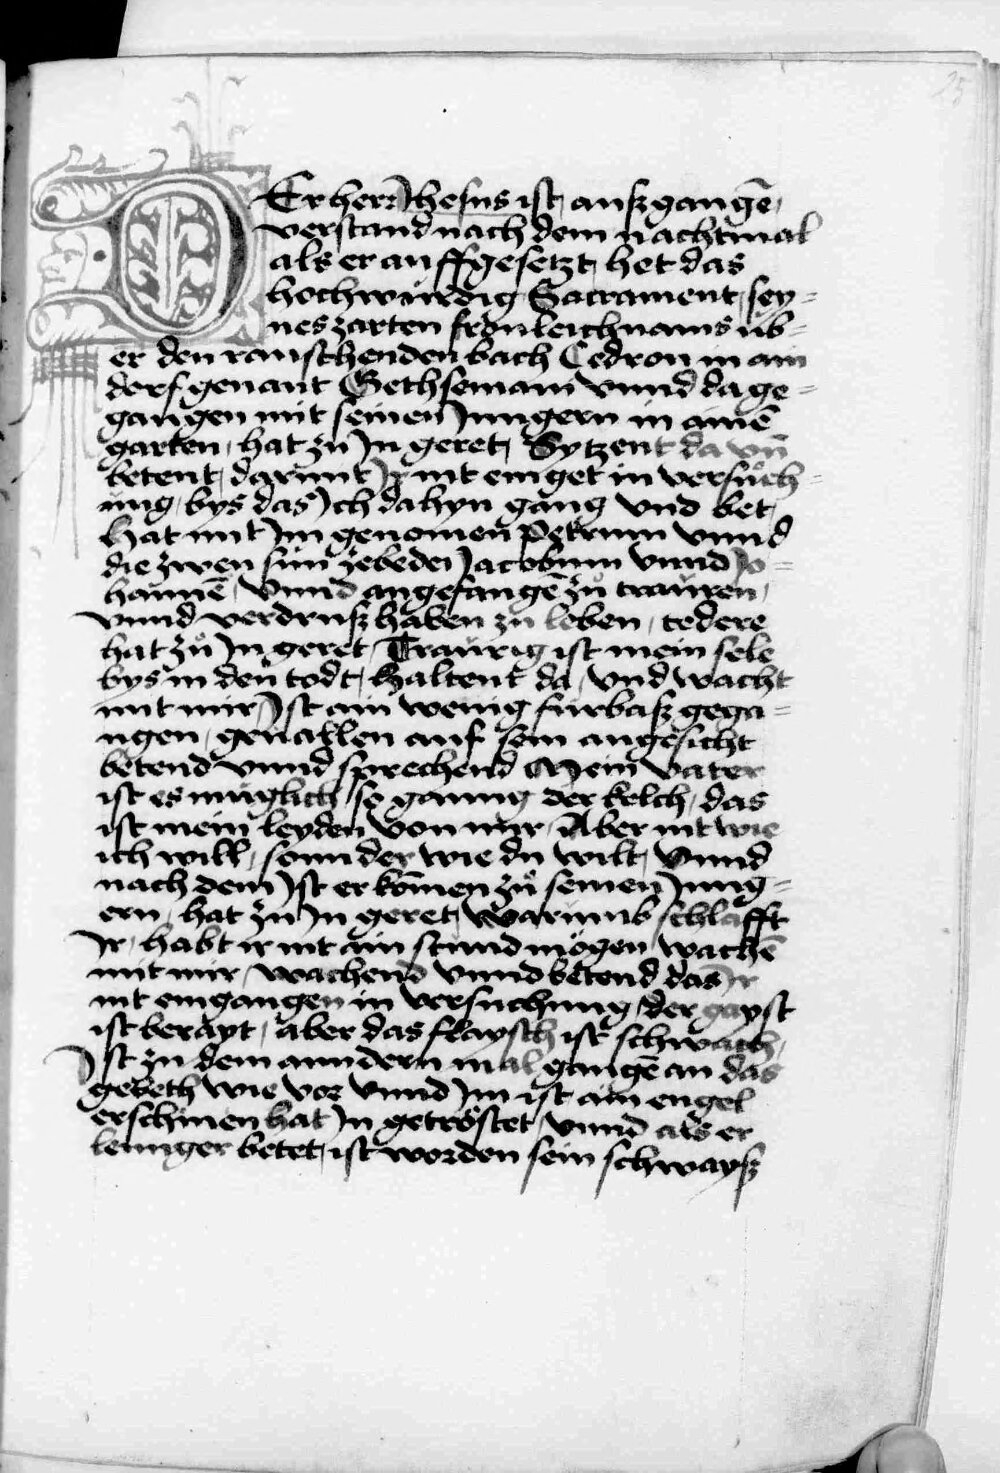 25
DEr herr Jhesus ist außgangē,
verstand nach dem nachtmal
als er auffgesetzt het das
hochwürdig Sacrament sey=
nes zarten fronleichnams üb=
er den rauschenden bach Cedron in ain
dorf genant Gethsemani vnnd da ge=
gangen mit seinen Jungern in ainē
garten, hat zu Jn geret, Sytzent da vn̄
betent, darmit Jr nit einget in versuͦch=
ung, bys das Jch dahyn gang vnd bet,
hat mit Jm genomen Petrum vnnd
die zwen sün zebedei Jacobum vnnd Jo=
hannē, Vnnd angefangē zuͦ trauren,
vnnd verdruß haben zu leben, tedere
hat zuͦ Jn geret, Traurig ist mein sele
bys in den todt, Haltent da, vnd wacht
mit mir, Jst ain wenig fürbaß gega=
ngen, geuallen auf sein angesicht
betend vnnd sprechend Mein vater
ist es müglich so ganng der kelch, das
ist mein leyden von mir, Aber nit wie
ich will, sonnder wie du wilt, Vnnd
nach dem Jst er komen zuͦ seinen Jung=
ern, hat zu Jn geret, Warumb schlafft
Jr, habt ir nit ain stund mögen wachē
mit mir, wachend vnnd betend das Jr
nit eingangen in versuchung, der gayst
ist berayt, aber das flaysch ist schwach,
Jst zu dem anndern mal gangē an das
gebeth wie vor vnnd Jm ist ain engel
erschinen hat Jn getröstet, vnnd als er
lennger betet, ist worden sein schwayß